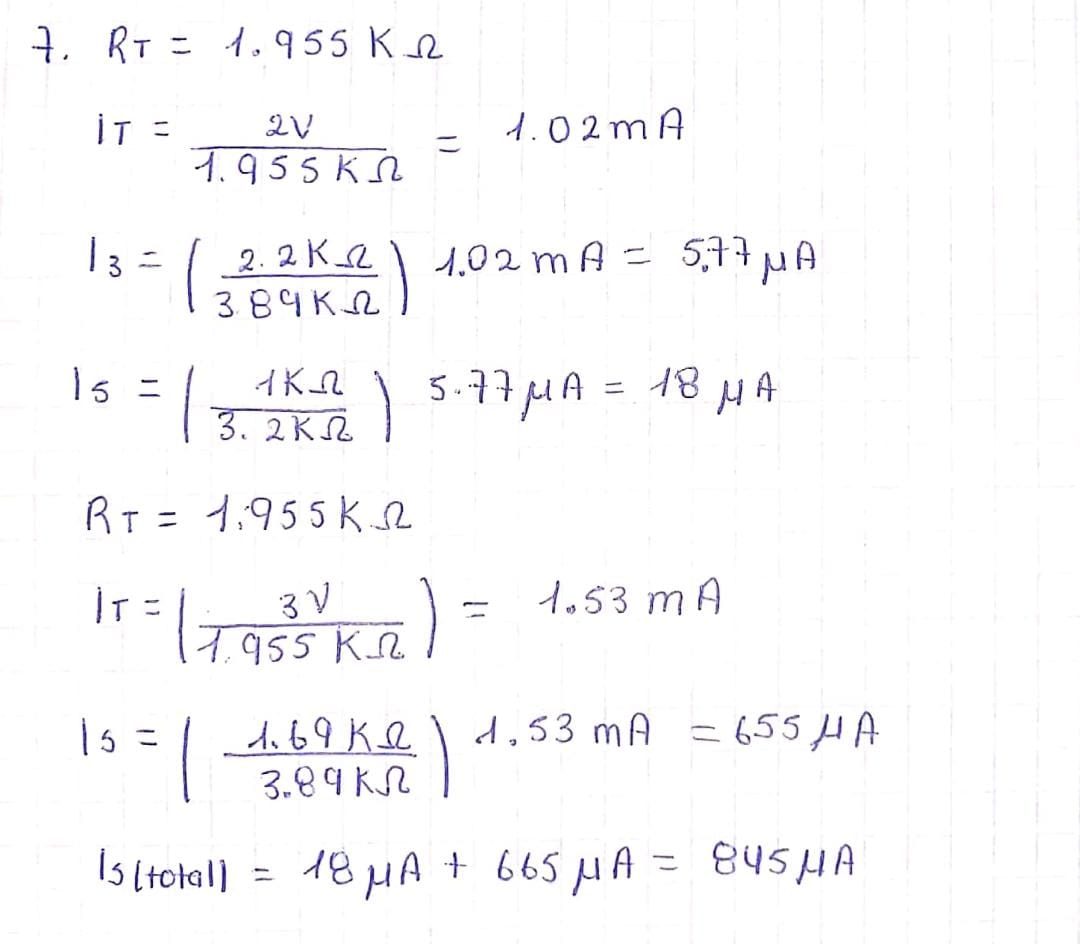 7. RT = 1.955 K Ω
IT = 2V / 1.955 K Ω = 1.02 mA
I3 = ( 2.2K Ω / 3.89K Ω ) 1.02 mA = 5.77 μA
I5 = ( 1K Ω / 3.2K Ω ) 5.77 μA = 18 μA
RT = 1.955K Ω
IT = ( 3V / 1.955 K Ω ) = 1.53 mA
I5 = ( 1.69 K Ω / 3.89 K Ω ) 1.53 mA = 655 μA
I5 (total) = 18 μA + 665 μA = 845 μA